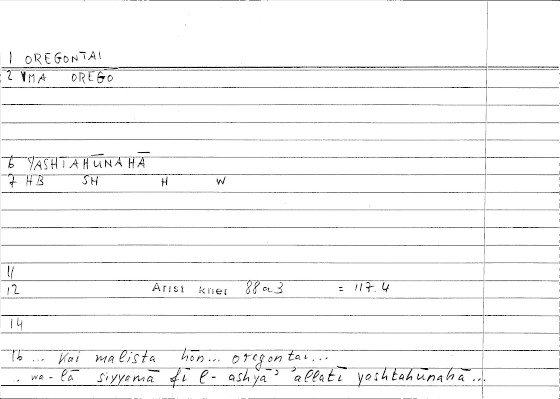 1 OREGONTAI
2 VMA OREGO
6 YASHTAHŪNAHĀ
7 HB SH H W
11
12 Arist khet 88a3 = 117.4
14
16 ... kai malista hōn... oregontai...
. wa-lā siyyamā fī l-ashyā' 'allatī yashtahūnahā...